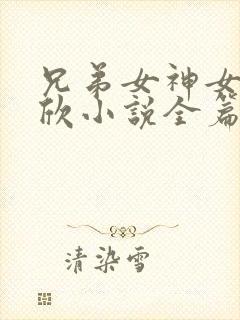 兄弟女神女
欣小说全篇
清染雪